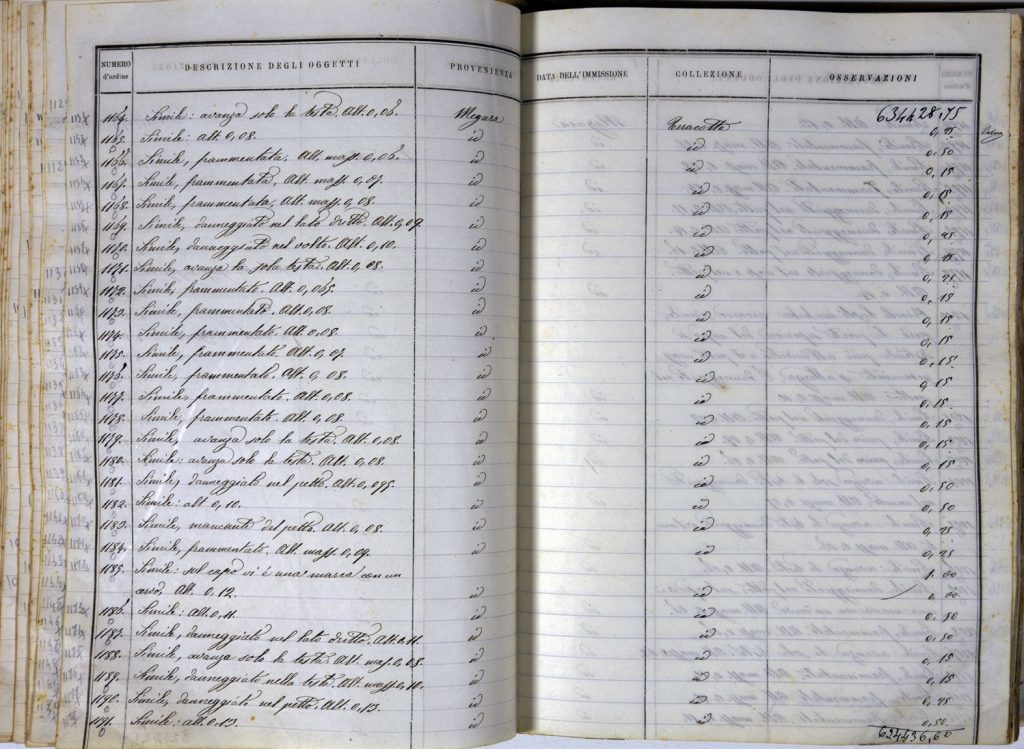 NUMERO d'ordine DESCRIZIONE DEGLI OGGETTI PROVENIENZA DATA DELL'IMMISSIONE COLLEZIONE OSSERVAZIONI
634428,75
1164. Simile: avanza solo la testa. Alt. 0,06. Megara Terracotta 0,25
1165. Simile: alt. 0,08. id id 0,50
1166. Simile, frammentata. Alt. mass. 0,06. id id 0,15
1167. Simile, frammentata. Alt. mass. 0,07. id id 0,15
1168. Simile, frammentata. Alt. mass. 0,08. id id 0,15
1169. Simile, danneggiato nel lato dritto. Alt. 0,09. id id
1170. Simile, danneggiato nel volto. Alt. 0,10. id id 0,25
1171. Simile, avanza la sola testa. Alt. 0,08. id id 0,25
1172. Simile, frammentato. Alt. 0,065. id id 0,15
1173. Simile, frammentato. Alt. 0,08. id id 0,15
1174. Simile, frammentato. Alt. 0,08. id id 0,15
1175. Simile, frammentato. Alt. 0,07. id id 0,15
1176. Simile, frammentato. Alt. 0,08. id id 0,15
1177. Simile, frammentato. Alt. 0,08. id id 0,15
1178. Simile, frammentato. Alt. 0,08 id id 0,15
1179. Simile, avanza solo la testa. Alt. 0,08. id id 0,15
1180. Simile: avanza solo la testa. Alt. 0,08. id id 0,15
1181. Simile, danneggiato nel petto. Alt. 0,095. id id 0,50
1182. Simile: alt 0,10. id id 0,50
1183. Simile, mancante del petto. Alt. 0,08. id id 0,25
1184. Simile, frammentato. Alt. mass. 0,09. id id 0,25
1185. Simile: sul capo vi è una con un 1.00
Alt. 0,12. id id 0,00
1186. Simile: Alt. 0,11. id id 0,50
1187. Simile, danneggiato nel lato dritto. Alt. 0,11. id id 0,50
1188. Simile, avanza solo la testa. Alt. mas. 0,08. id id 0,15
1189. Simile, danneggiato nella testa. Alt. mass. 0,10. id id 0,15
1190. Simile, danneggiato nel petto. Alt. 0,13. id id 0,25
1191. Simile: alt. 0,13. id id 0,50
634436,60